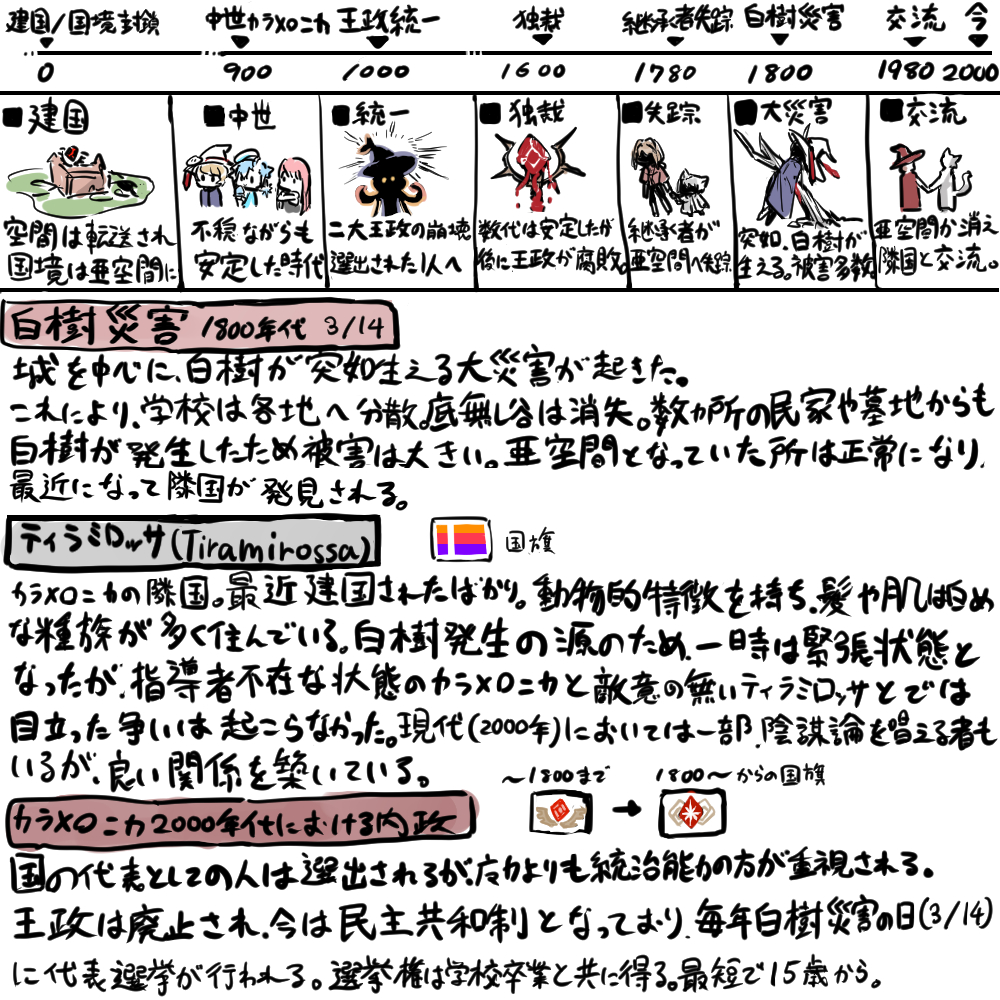 建国/国境封鎖 中世カラメロニカ 王政統一 独裁 継承者失踪 白樹災害 交流 今
0 900 1000 1600 1780 1800 1980 2000
■建国
空間は転送され
国境は亜空間に
■中世
不穏ながらも
安定した時代
■統一
二大王政の崩壊
選出された1人へ
■独裁
数代は安定したが
後に王政が腐敗。
■失踪
継承者が
亜空間へ失踪
■大災害
突如、白樹が
生える。被害多数
■交流
亜空間が消え
隣国と交流。
白樹災害 1800年代 3/14
城を中心に、白樹が突如生える大災害が起きた。
これにより、学校は各地へ分散。底無し谷は消失。数ヵ所の民家や墓地からも
白樹が発生したため被害は大きい。亜空間となっていた所は正常になり、
最近になって隣国が発見される。
ティラミロッサ(Tiramirossa)
国旗
カラメロニカの隣国。最近建国されたばかり。動物的特徴を持ち、髪や肌は白め
な種族が多く住んでいる。白樹発生の源のため、一時は緊張状態と
なったが、指導者不在な状態のカラメロニカと敵意の無いティラミロッサとでは
目立った争いは起こらなかった。現代(2000年)においては一部、陰謀論を唱える者も
いるが、良い関係を築いている。
～1800まで 1800～からの国旗
カラメロニカ2000年代における内政
国の代表としての人は選出されるが、力よりも統治能力の方が重視される。
王政は廃止され、今は民主共和制となっており、毎年白樹災害の日(3/14)
に代表選挙が行われる。選挙権は学校卒業と共に得る。最短で15歳から。